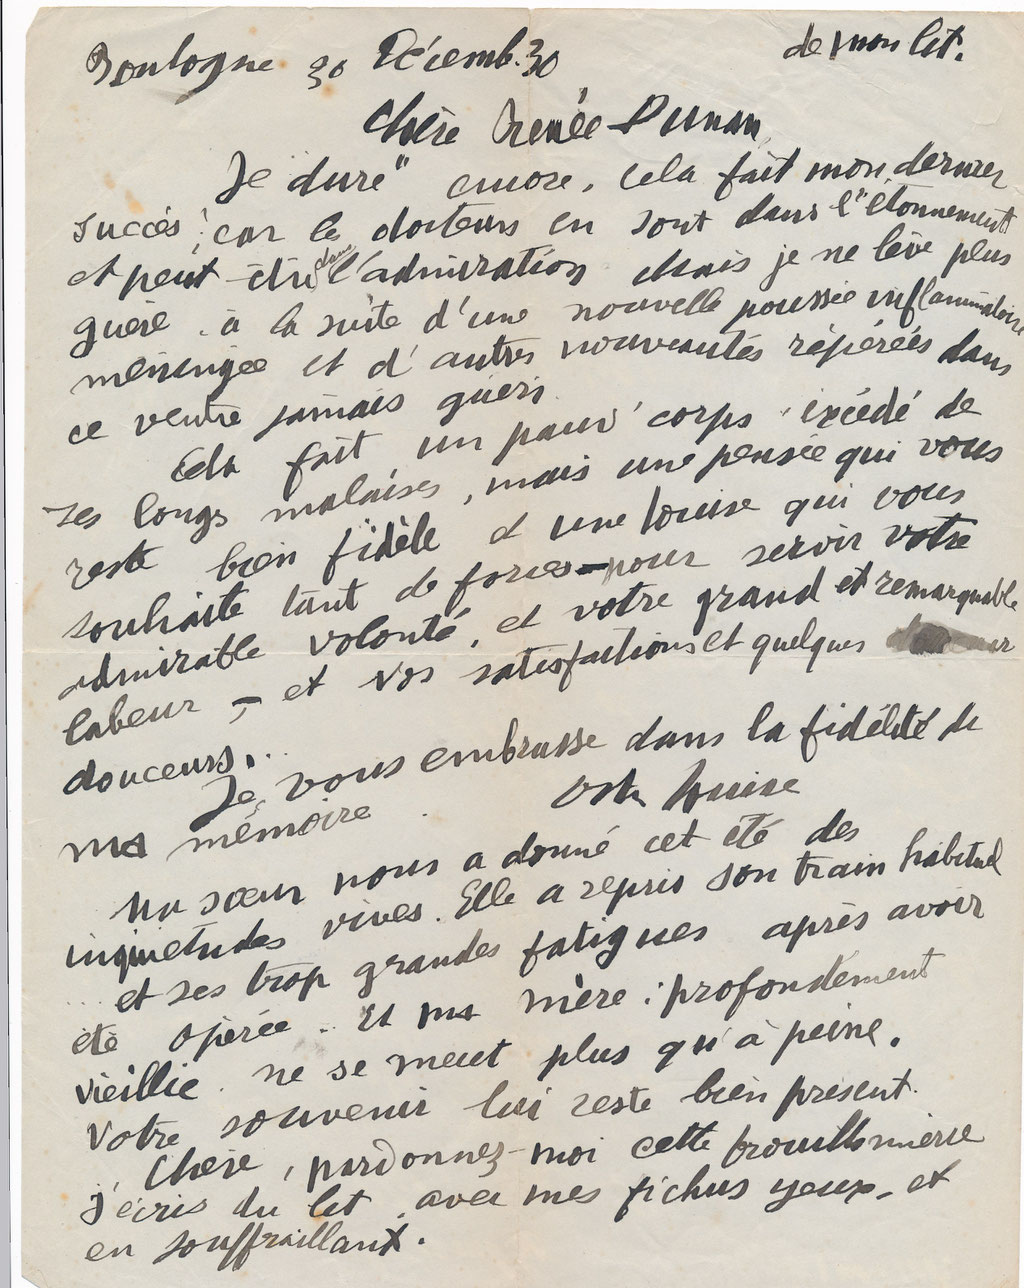 Boulogne 30 Décemb. 30 de mon lit.
Chère Renée Dunan,
Je "dure" encore, cela fait mon dernier
succès ! car les docteurs en sont dans l'"étonnement
et peut-être dans l'admiration. Mais je ne lève plus
guère. à la suite d'une nouvelle poussée inflammatoire
méningée et d'autres nouveautés repérées dans
ce ventre jamais guéri.
Cela fait un pauv' corps, excédé de
ses longs malaises, mais une pensée qui vous
reste bien fidèle et une Louise qui vous
souhaite tant de forces – pour servir votre
admirable volonté, et votre grand et remarquable
labeur, – et vos satisfactions et quelques
douceurs...
Je vous embrasse dans la fidélité de
ma mémoire. Vtre Louise
Ma sœur nous a donné cet été des
inquiétudes vives. Elle a repris son train habituel
... et ses trop grandes fatigues après avoir
été opérée. Et ma mère : profondément
vieillie. ne se meut plus qu'à peine.
Votre souvenir lui reste bien présent.
Chère, pardonnez-moi cette brouillonnerie
j'écris du lit, avec mes fichus yeux, et
en souffraillant.